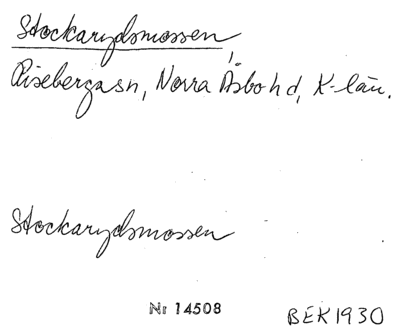 Stockarydsmossen,
Risebergasn, Norra Åsbohd, K-län.
Stockarydsmossen
Nr 14508
BEK 1930